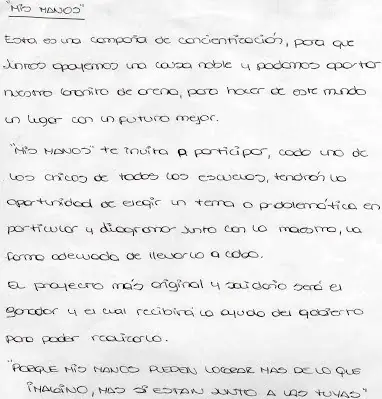 "MIS MANOS"
Esta es una campaña de concientización, para que
Juntos apoyemos una causa noble y podamos aportar
nuestro granito de arena, para hacer de este mundo
un lugar con un futuro mejor.
"MIS MANOS" te invita a participar, cada uno de
los chicos de todas las escuelas, tendrán la
oportunidad de elegir un tema o problemática en
particular y diagramar junto con la maestra, la
forma adecuada de llevarlo a cabo.
El proyecto más original y solidario será el
ganador y el cual recibirá la ayuda del gobierno
para poder realizarlo.
"PORQUE MIS MANOS PUEDEN LOGRAR MAS DE LO QUE
IMAGINO, MAS SI ESTAN JUNTO A LAS TUYAS"